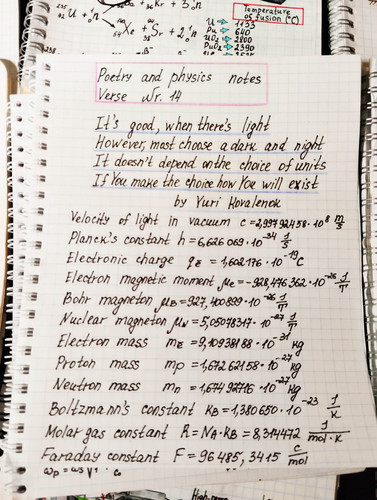 235 92 U + 1 0 n
Ba + 36 Kr + 3 1 0 n
54 Xe + 38 Sr + 2 1 0 n
Temperature
of fusion (°C)
U → 1133
Pu → 640
UO2 → 2800
PuO2 → 2390
Poetry and physics notes
Verse Nr. 14
It's good, when there's light
However, most choose a dark and night
It doesn't depend on the choice of units
If You make the choice how You will exist
by Yuri Kovalenok
Velocity of light in vacuum c = 2,99792458·10⁸ m/s
Planck's constant h = 6,626069·10⁻³⁴ 1/s
Electronic charge qE = 1,602176·10⁻¹⁹ C
Electron magnetic moment μe = -928,476362·10⁻²⁶ 1/T
Bohr magneton μB = 927,400899·10⁻²⁶ 1/T
Nuclear magneton μN = 5,05078317·10⁻²⁷ 1/T
Electron mass mE = 9,10938188·10⁻³¹ kg
Proton mass mP = 1,67262158·10⁻²⁷ kg
Neutron mass mn = 1,67492716·10⁻²⁷ kg
Boltzmann's constant kB = 1,380650·10⁻²³ 1/K
Molar gas constant R = NA·kB = 8,314472 1/mol·K
Faraday constant F = 96485,3415 C/mol